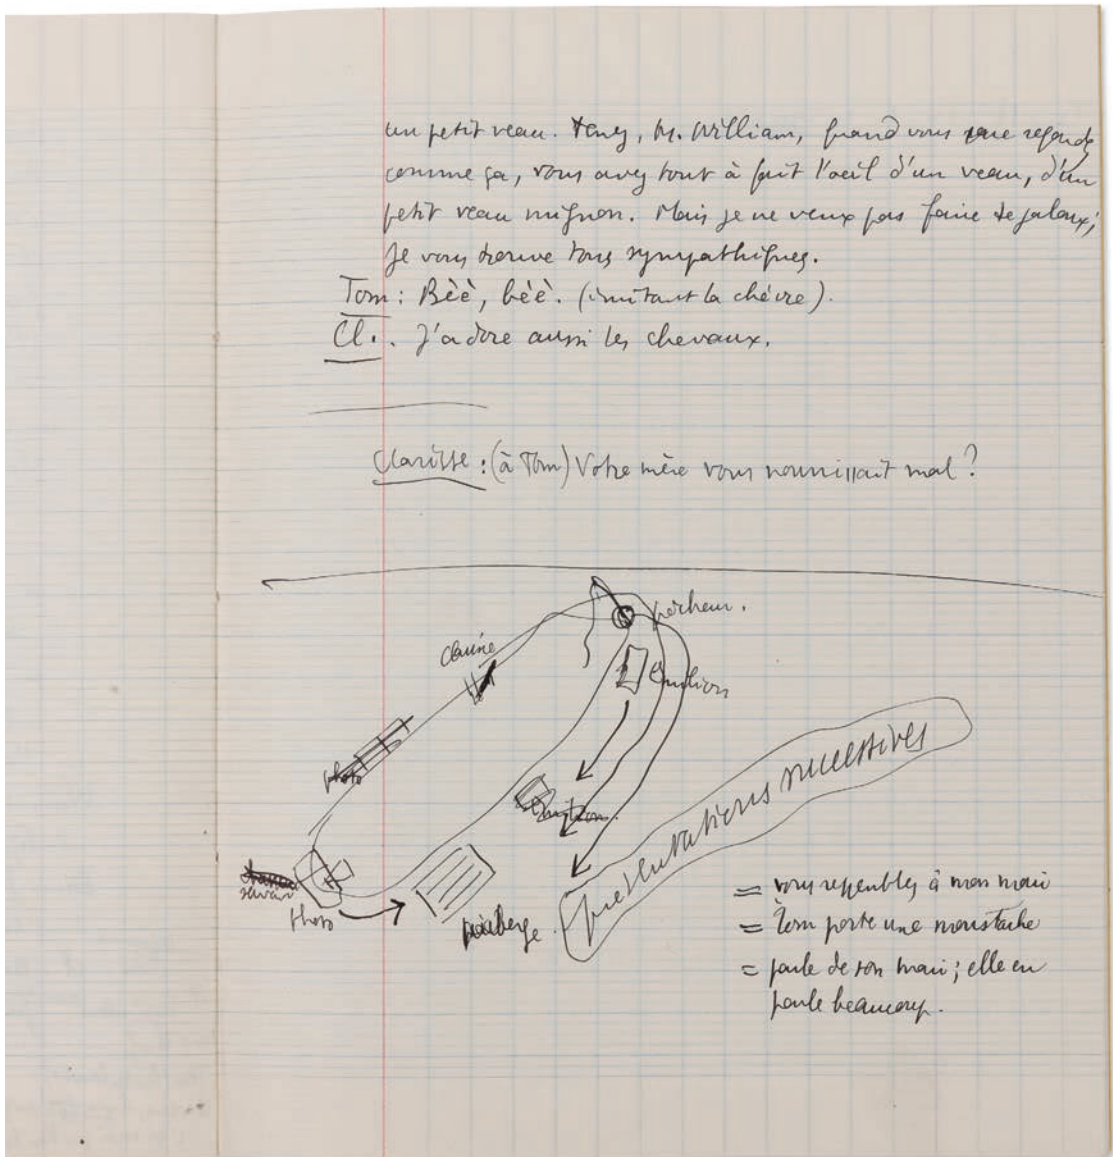 un petit veau. Tenez, M. William, quand vous me regardez
comme ça, vous avez tout à fait l'oeil d'un veau, d'un
petit veau mignon. Mais je ne veux pas faire de jaloux;
je vous trouve tous sympathiques.
Tom: Bèè, bèè. (imitant la chèvre).
Cl.. J'adore aussi les chevaux.
Clarisse : (à Tom) Votre mère vous nourrissait mal?
pêcheur.
photo
photo
berge.
successives
= vous ressemblez à mon mari
= Tom porte une moustache
= parle de son mari; elle en
parle beaucoup.